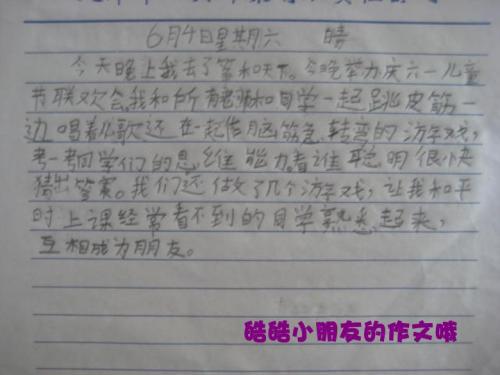 6月4日星期六 晴
今天晚上我去了笨和天下。今晚举办庆六一儿童
节联欢会,我和所有老师和同学一起跳皮筋一
边唱着儿歌还在一起作脑筋急转弯的游戏,
考一考同学们的思维能力看谁聪明很快
猜出答案。我们还做了几个游戏,让我和平
时上课经常看不到的同学熟悉起来,
互相成为朋友。
酷酷小朋友的作文哦